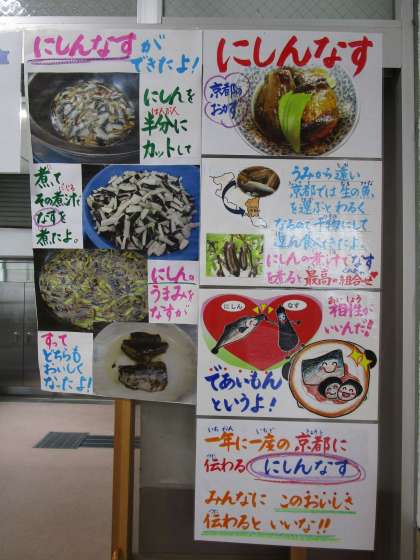 にしんなすが
できたよ!
にしんを
はんぶん
半分に
カットして
煮て
その煮汁で
なすを
煮たよ。
にしんの
うまみをなすが
すって
どちらも
おいしく
なったよ!
にしんなす
京都の
おかず
うみから遠い
京都では生の魚
を運ぶとわるく
なるので干物にして
運んで食べてきたよ。
にしんの煮汁でなす
を煮ると最高の組合せ
にしん
なす
あいしょう
相性が
いいんだ!!
であいもん
というよ!
一年に一度の京都に
つた
伝わる にしんなす
みんなに このおいしさ
伝わると いいな!!